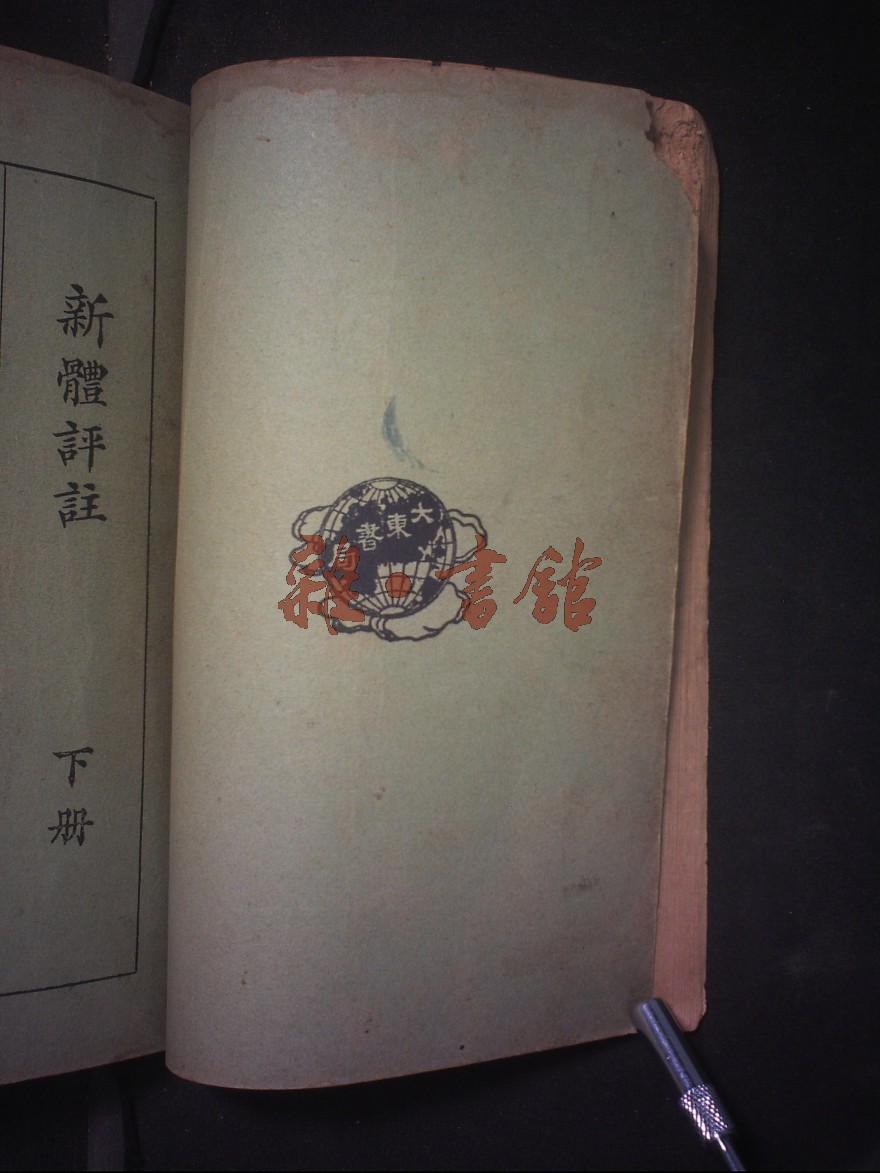 新體評註
下册
大東書局
雜·書館